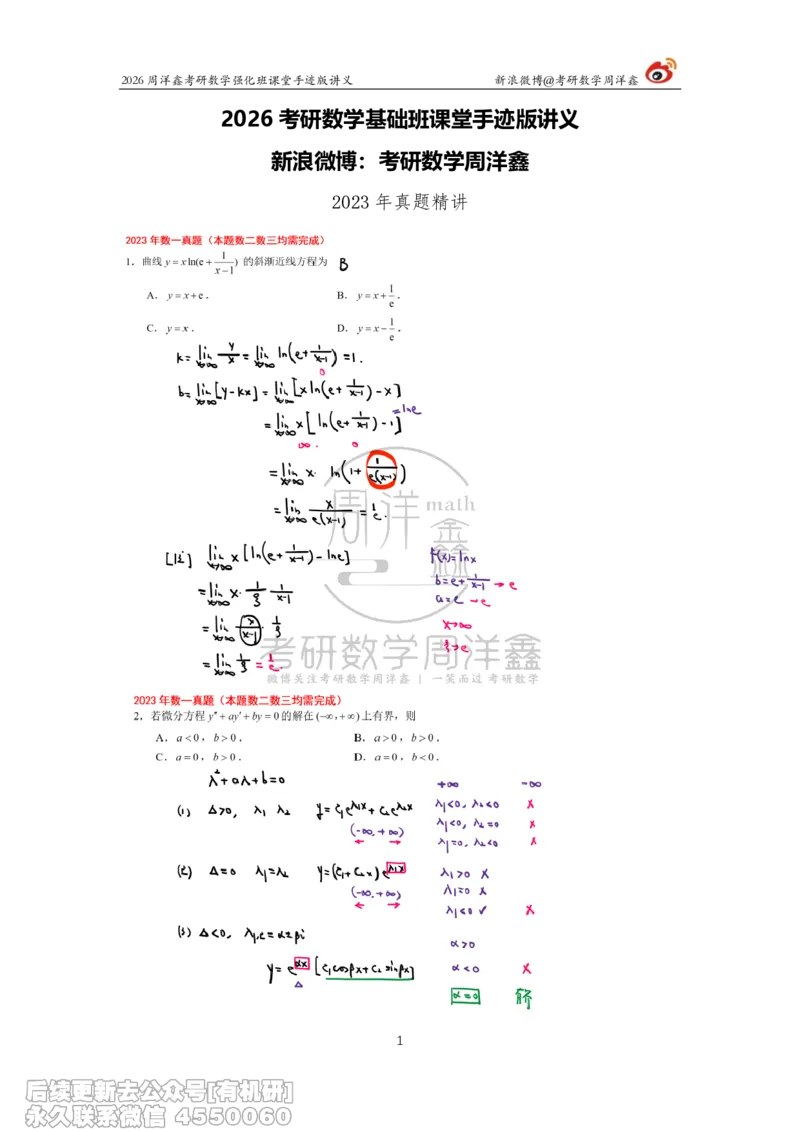 2026周洋鑫考研数学强化班课堂手迹版讲义 新浪微博@考研数学周洋鑫
2026考研数学基础班课堂手迹版讲义
新浪微博：考研数学周洋鑫
2023年真题精讲
2023年数一真题（本题数二数三均需完成）
1．曲线 y=xln(e+1/(x−1)) 的斜渐近线方程为 B
A．y=x+e． B．y=x+1/e．
C．y=x． D．y=x−1/e．
k=lim x→∞ y/x=lim x→∞ ln(e+1/(x-1))=1.
0
b=lim x→∞[y-kx]=lim x→∞[xln(e+1/(x-1))-x]
=lim x→∞ x[ln(e+1/(x-1))-1] =lne
∞. 0
=lim x→∞ x·ln(1+1/(e(x-1)))
=lim x→∞ x/(e(x-1))=1/e.
周洋鑫math
[法] lim x→∞ x[ln(e+1/(x-1))-lne] f(x)=lnx
b=e+1/(x-1)→e
=lim x→∞ x·1/ξ·1/(x-1) a=e→e
=lim x→∞ x/(x-1)·1/ξ x→∞
ξ→e
=lim x→∞ 1/ξ=1/e.
考研数学周洋鑫
微博关注考研数学周洋鑫 | 一笑而过 考研数学
2023年数一真题（本题数二数三均需完成）
2，若微分方程 y″+ay′+by=0的解在(−∞,+∞)上有界，则
A．a<0，b>0． B．a>0，b>0．
C．a=0，b>0． D．a=0，b<0．
λ²+aλ+b=0 +∞ -∞
(1) Δ>0, λ1 λ2 y=c1e^λ1x+c2e^λ2x λ1<0, λ2<0 ×
(-∞,+∞) λ1<0, λ2=0 ×
← → λ1=0, λ2<0 ×
(2) Δ=0 λ1=λ2 y=(c1+c2x)e^λ1x λ1>0 ×
(-∞,+∞) λ1=0 ×
← → λ1<0 ✓ ×
(3) Δ<0, λ1,2=α±βi α>0
y=e^αx[c1cosβx+c2sinβx] α<0 ×
Δ α=0
1
后续更新去公众号[有机研]
永久联系微信 4550060